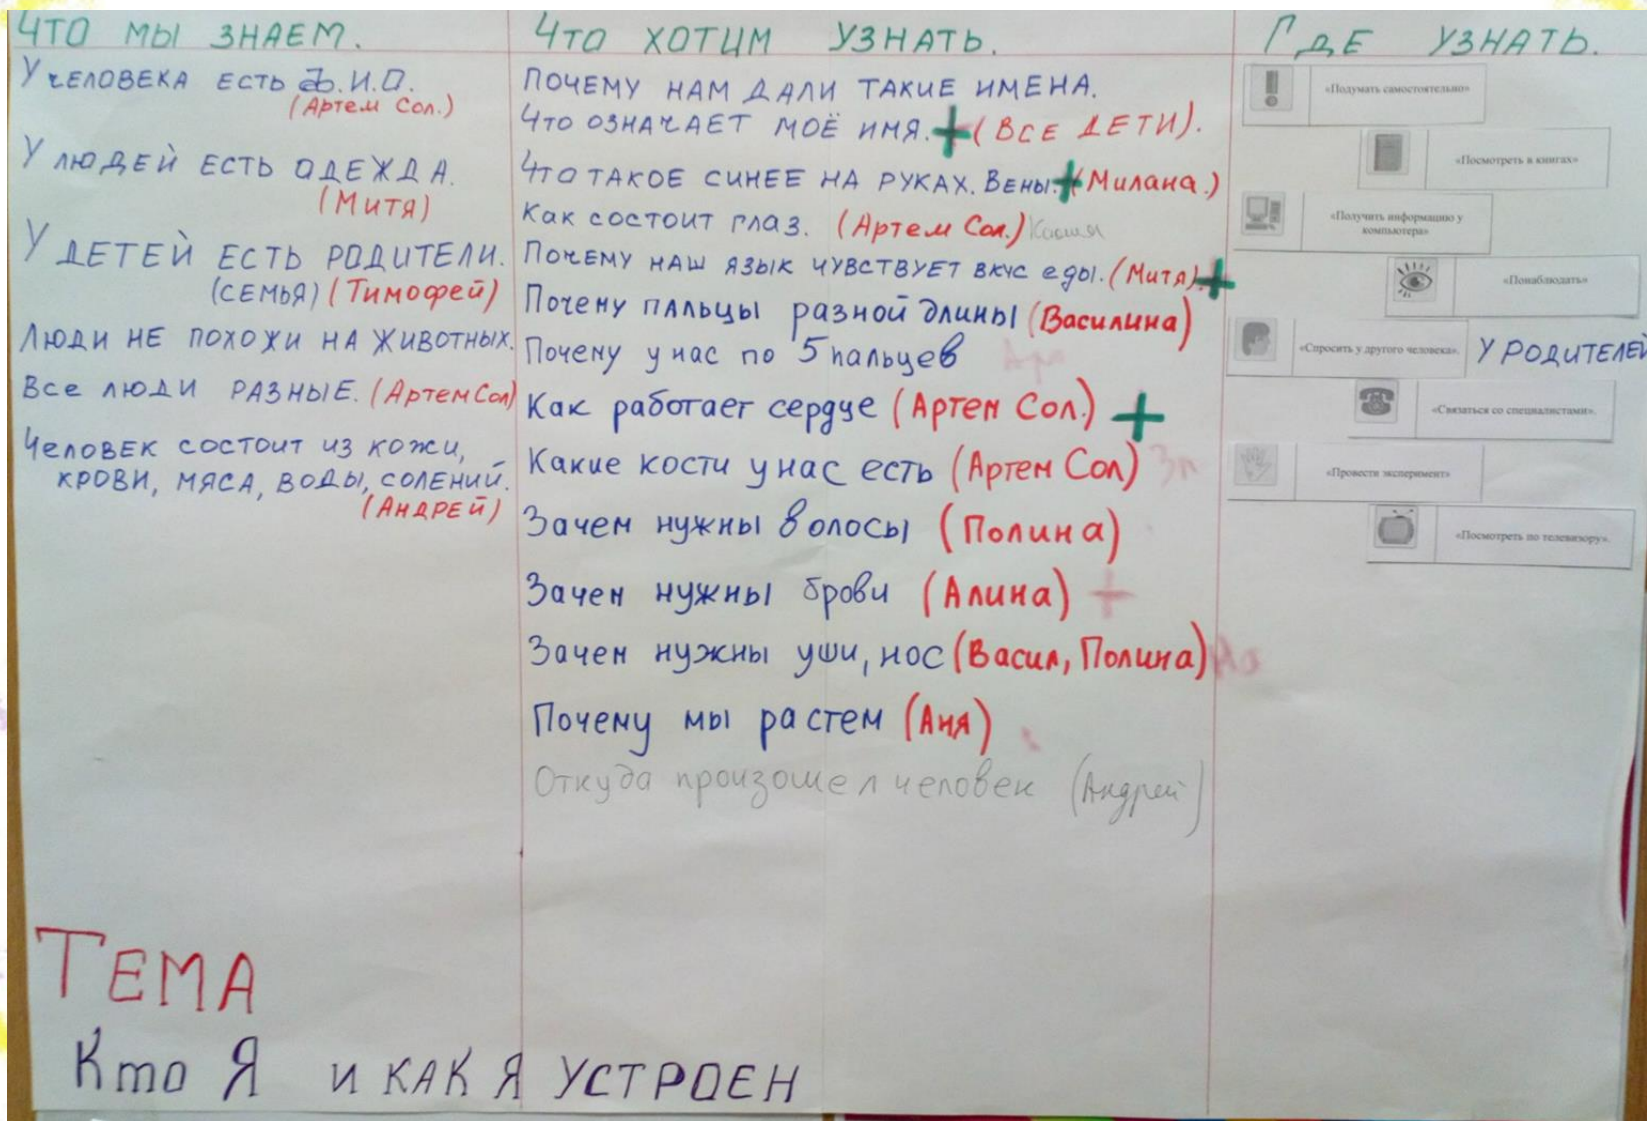 ЧТО МЫ ЗНАЕМ.
У ЧЕЛОВЕКА ЕСТЬ Ф.И.О.
(Артем Сол.)
У ЛЮДЕЙ ЕСТЬ ОДЕЖДА.
(МИТЯ)
У ДЕТЕЙ ЕСТЬ РОДИТЕЛИ.
(СЕМЬЯ) (Тимофей)
ЛЮДИ НЕ ПОХОЖИ НА ЖИВОТНЫХ.
Все ЛЮДИ РАЗНЫЕ. (Артем Сол)
ЧЕЛОВЕК СОСТОИТ ИЗ КОЖИ,
КРОВИ, МЯСА, ВОДЫ, СОЛЕНИЙ.
(АНДРЕЙ)
ЧТО ХОТИМ УЗНАТЬ.
ПОЧЕМУ НАМ ДАЛИ ТАКИЕ ИМЕНА.
ЧТО ОЗНАЧАЕТ МОЁ ИМЯ. + (ВСЕ ДЕТИ).
ЧТО ТАКОЕ СИНЕЕ НА РУКАХ. ВЕНЫ. + (Милана.)
Как состоит глаз. (Артем Сол.)
ПОЧЕМУ НАШ ЯЗЫК ЧУВСТВУЕТ ВКУС еды. (Митя). +
Почему пальцы разной длины (Василина)
Почему у нас по 5 пальцев
Как работает сердце (Артем Сол.) +
Какие кости у нас есть (Артем Сол)
Зачем нужны волосы (Полина)
Зачем нужны брови (Алина) +
Зачем нужны уши, нос (Васил, Полина)
Почему мы растем (Аня)
Откуда произошел человек (Андрей)
ГДЕ УЗНАТЬ.
«Подумать самостоятельно»
«Посмотреть в книгах»
«Получить информацию у
компьютера»
«Понаблюдать»
«Спросить у другого человека». У РОДИТЕЛЕЙ
«Связаться со специалистами».
«Провести эксперимент»
«Посмотреть по телевизору».
ТЕМА
Кто Я И КАК Я УСТРОЕН